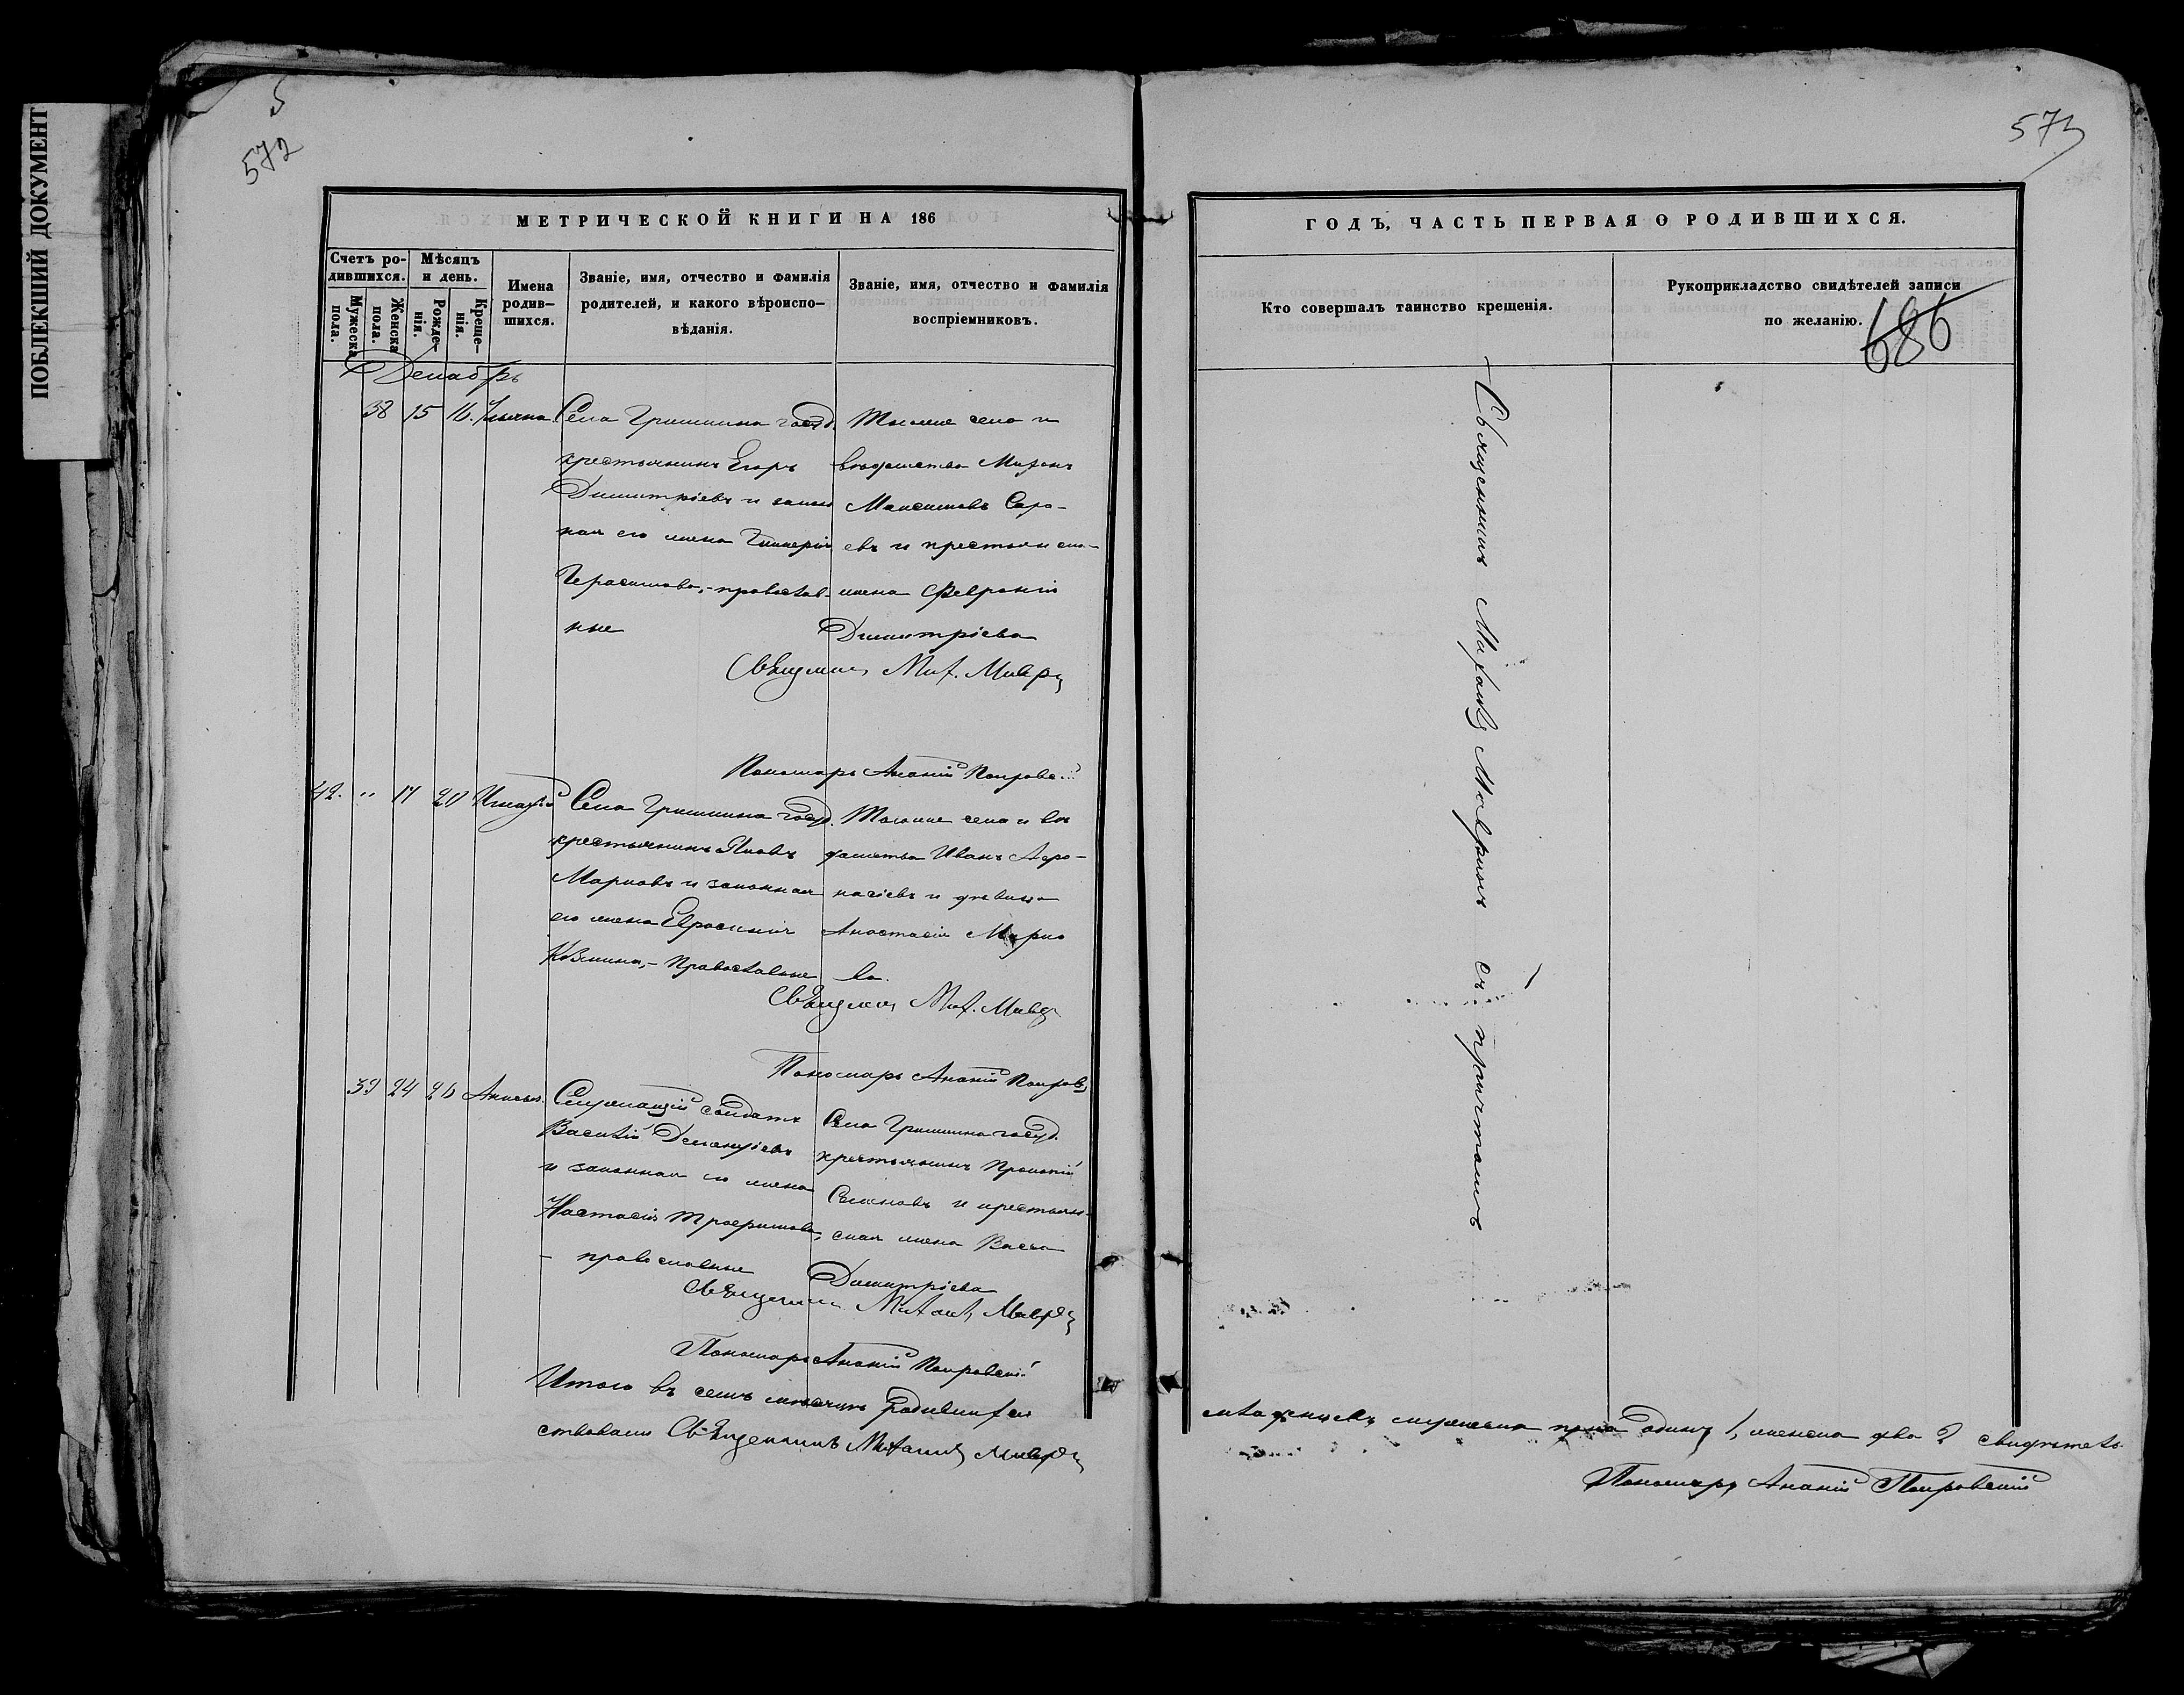 ПОБЛЕКШИЙ ДОКУМЕНТ
572
573
МЕТРИЧЕСКОЙ КНИГИ НА 186
Счетъ ро-
дившихся.
Мужеска
пола.
Женска
пола.
Мѣсяцъ
и день.
Рожде-
нія.
Креще-
нія.
Имена
родив-
шихся.
Званіе, имя, отчество и фамилія
родителей, и какого вѣроиспо-
вѣданія.
Званіе, имя, отчество и фамилія
воспріемниковъ.
Декабрь
38 15 16.
Села Гришкина госуд.
крестьянинъ Егоръ
Димитріевъ и закон
ная его жена Гликерія
Герасимова,- православ-
ные
Тогоже села и
вѣдомства
Максимовъ
евъ и крестьянска-
жена Февронія
Димитріева
Священникъ Мих. Мавр
Пономарь Ананій Покровс
42. " 17 20 Игнатій
Села Гришкина госуд.
крестьянинъ Яковъ
Марковъ и законная
его жена Евросинія
Козмина,- Православные
Тогоже села и вѣ
домства Иванъ Афо-
насіевъ и дѣвица
Анастасія Марко
ва.
Священник Мих. Мавр
Пономарь Ананій Покров
39 24 26 Анисья.
Служащій солдатъ
Василій Дементіевъ
и законная его жена
Настасія Трофимова,
- православные
Села Гришкина госуд.
крестьянинъ Прокопій
Семеновъ и крестьян-
ская жена Васса
Димитріева
Священник Михаилъ Мавр
Пономарь Ананій Покровскій
Итого въ семъ мѣсяцѣ родившихся
ствовали Священникъ Михаилъ Мавр
ГОДЪ, ЧАСТЬ ПЕРВАЯ О РОДИВШИХСЯ.
Кто совершалъ таинство крещенія.
Рукоприкладство свидѣтелей записи
по желанію.
686
Священникъ Михаилъ Мавринъ съ причтомъ
младенцевъ мужеска пола одинъ 1, женска два 2 свидѣтель
Пономарь Ананій Покровскій